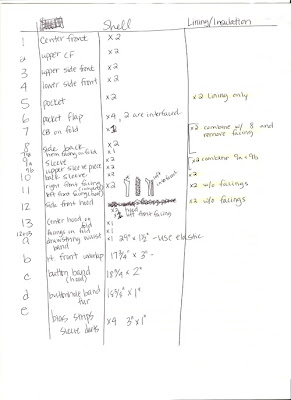 Shell Lining/Insulation
1 center front x2
2 upper CF x2
3 upper side front x2
4 lower side front x2
5 pocket x2 x2 lining only
6 pocket flap x4, 2 are interfaced
7 CB on fold x1 x2 combine w/ 8 and remove facing
8 side back x2
hem facing on fold x1
9a sleeve x2 x2 combine 9a + 9b
9b upper sleeve piece x2
10 back sleeve x2
11 right front facing x2 x2 w/o facings
left front facing
12 side front hood x2 x2 w/o facings
x1 left front facing
13 center hood on fold x1
facings on fold x1
a drawstring waist band x1 29" x 1½" - use elastic
b rt. front underlap 17¾" x 3"
c button band (hood) 18¾ x 2"
d buttonhole band fur x 1"
e bias strips x4 3" x 1"
sleeve darts